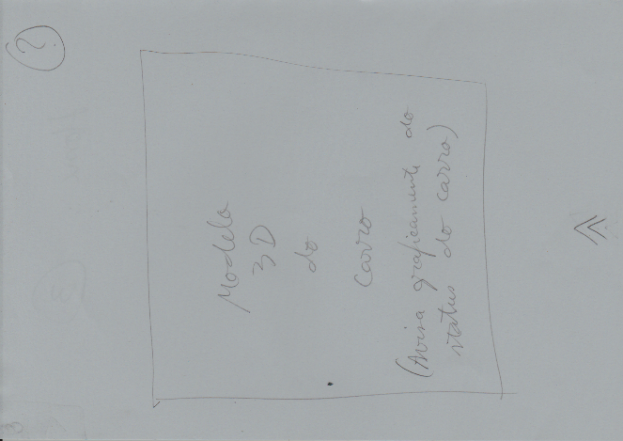 ?
Modelo
3D
do
carro
(Avisa graficamente do
status do carro)
3